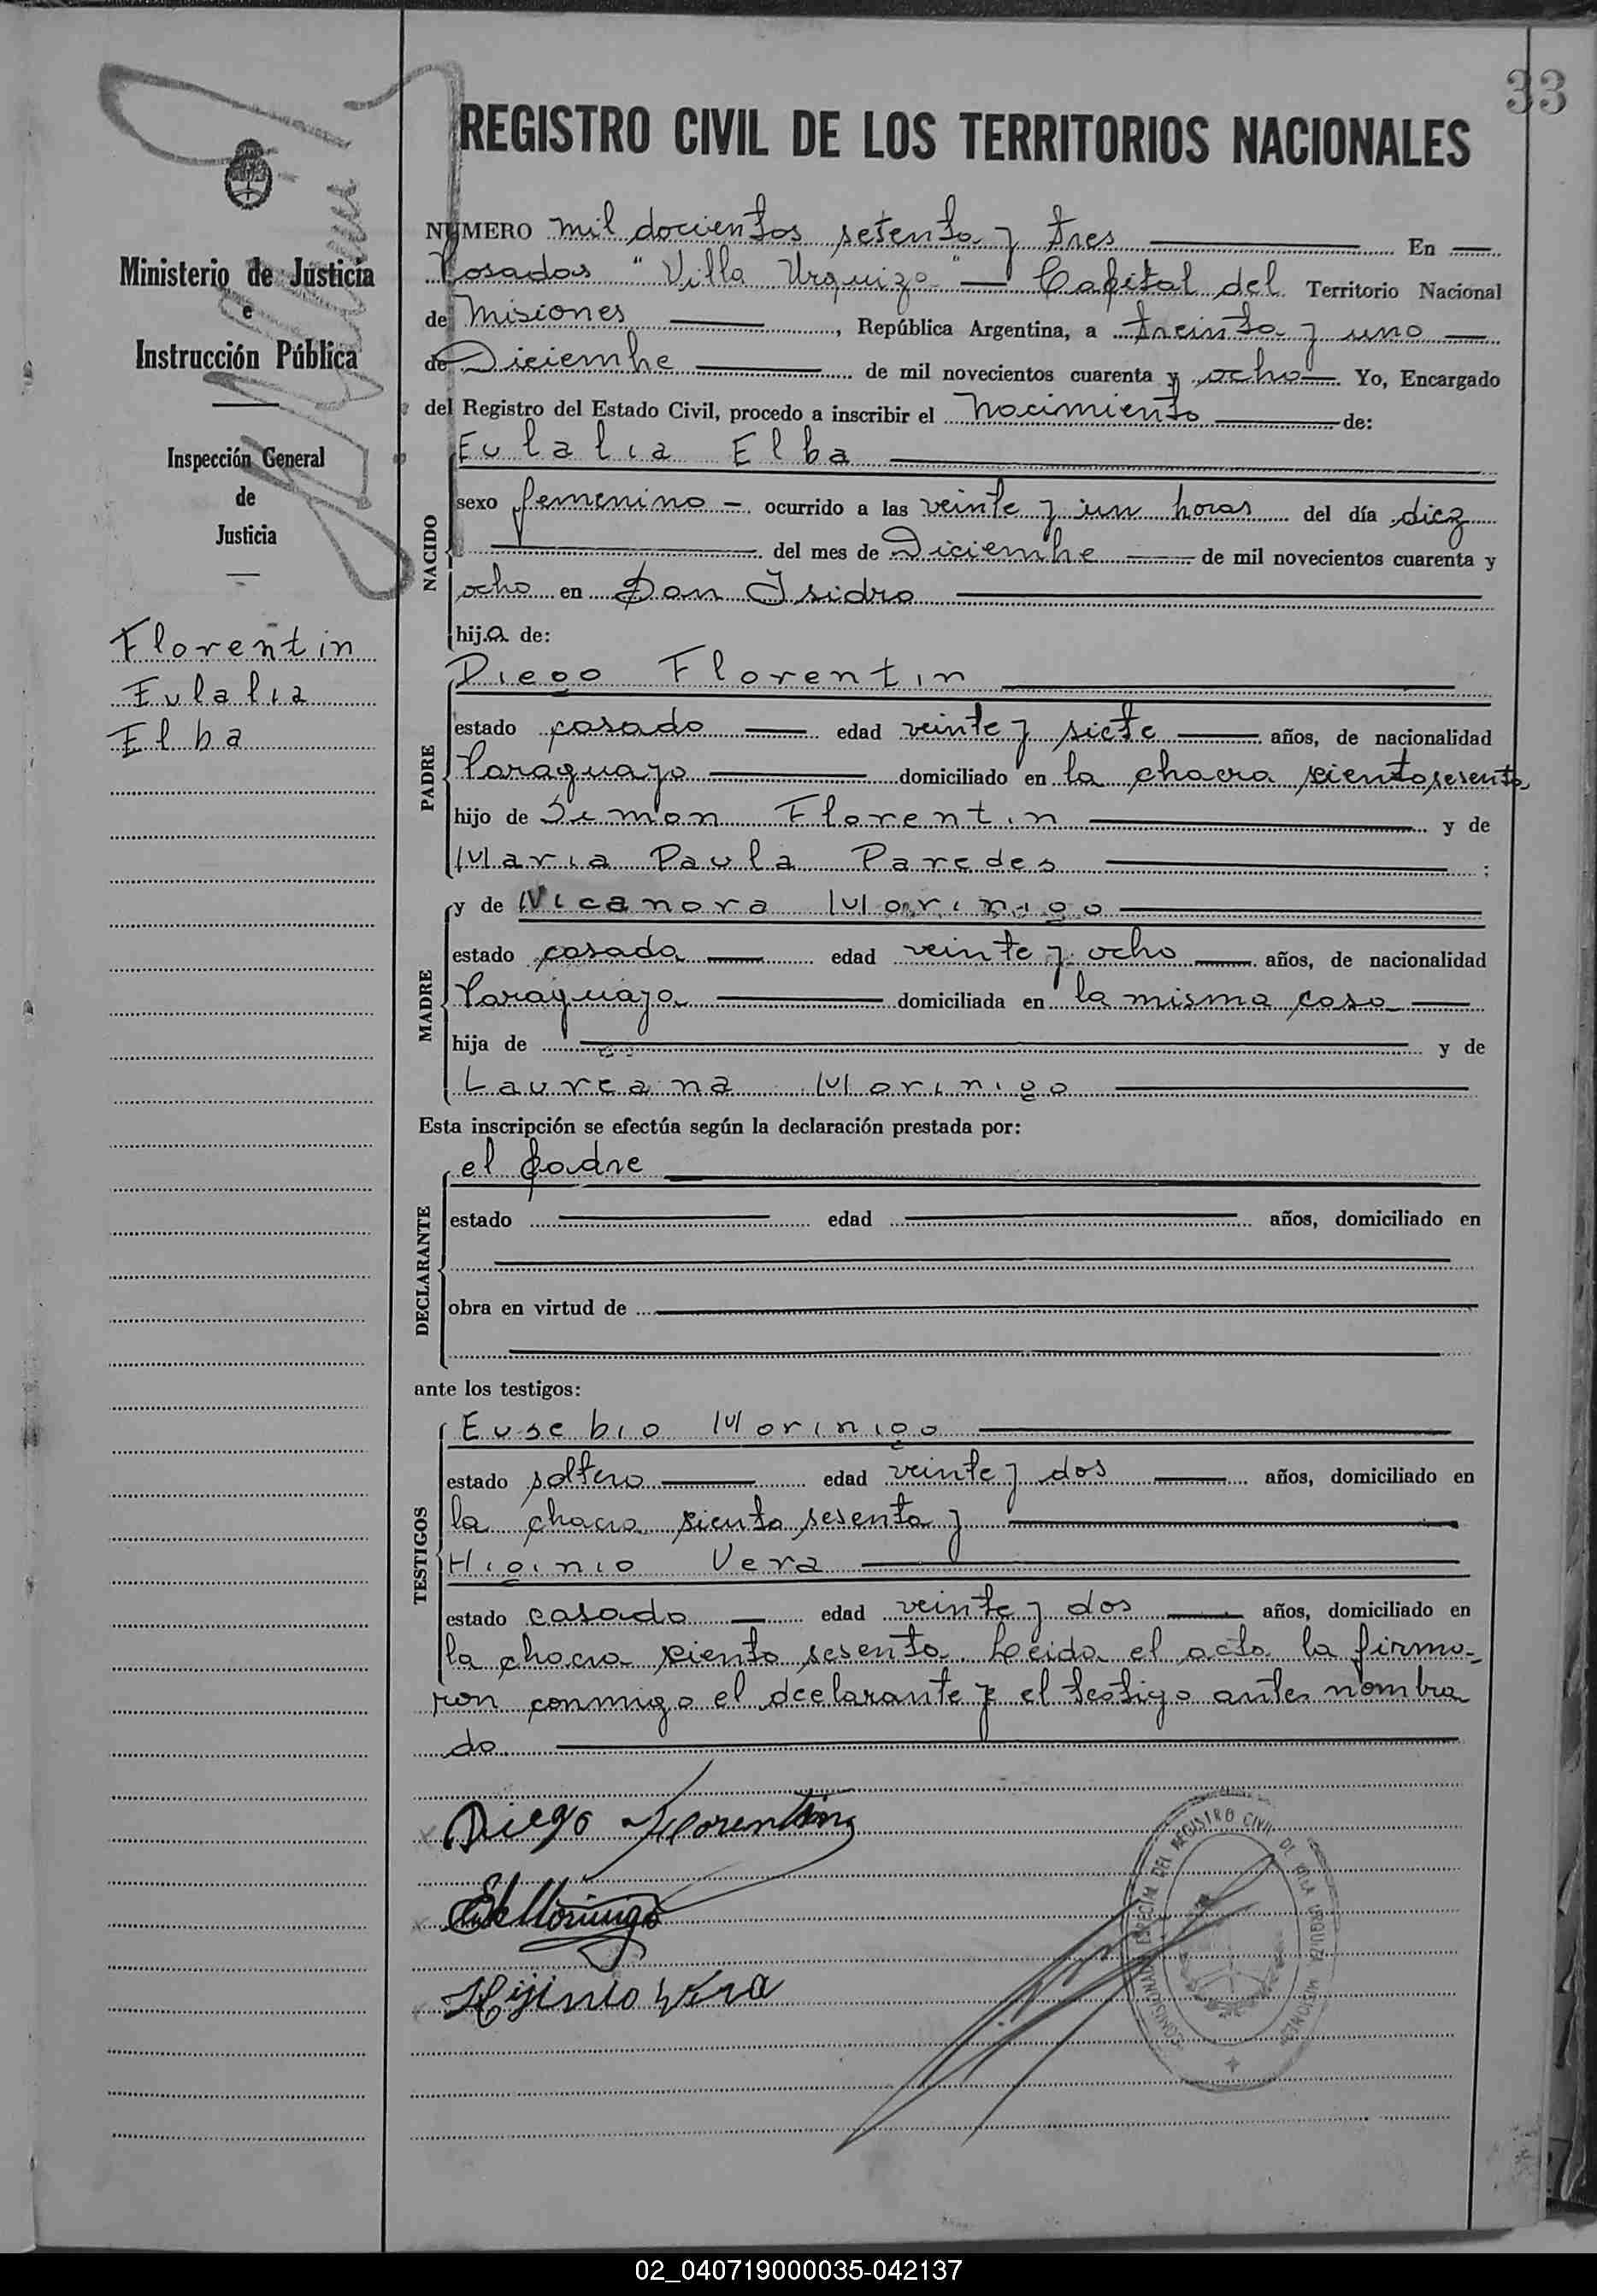 33
REGISTRO CIVIL DE LOS TERRITORIOS NACIONALES
Ministerio de Justicia
e
Instrucción Pública
Inspección General
de
Justicia
Florentin
Eulalia
Elba
NUMERO mil docientos setenta y tres En
Posadas "Villa Urquiza" Capital del Territorio Nacional
de Misiones, República Argentina, a treinta y uno
de Diciembre de mil novecientos cuarenta y ocho Yo, Encargado
del Registro del Estado Civil, procedo a inscribir el nacimiento de:
NACIDO
Eulalia Elba
sexo femenino - ocurrido a las veinte y un horas del día diez
del mes de Diciembre de mil novecientos cuarenta y
ocho en San Isidro
hija de:
PADRE
Diego Florentin
estado casado edad veinte y siete años, de nacionalidad
Paraguayo domiciliado en la chacra ciento sesenta
hijo de Simon Florentin y de
Maria Paula Paredes ;
MADRE
y de Nicanora Morinigo
estado casada edad veinte y ocho años, de nacionalidad
Paraguaya domiciliada en la misma casa
hija de y de
Laureana Morinigo
Esta inscripción se efectúa según la declaración prestada por:
DECLARANTE
el padre
estado edad años, domiciliado en
obra en virtud de
ante los testigos:
TESTIGOS
Eusebio Morinigo
estado soltero edad veinte y dos años, domiciliado en
la chacra ciento sesenta y
Higinio Vera
estado casado edad veinte y dos años, domiciliado en
la chacra ciento sesenta. Leida el acta la firma-
ron conmigo el declarante y el testigo antes nombra
do.
Diego Florentin
Morinigo
Hijinio Vera
COMISIONADO ESPECIAL DEL REGISTRO CIVIL DE VILLA URQUIZA MISIONES
02_040719000035-042137